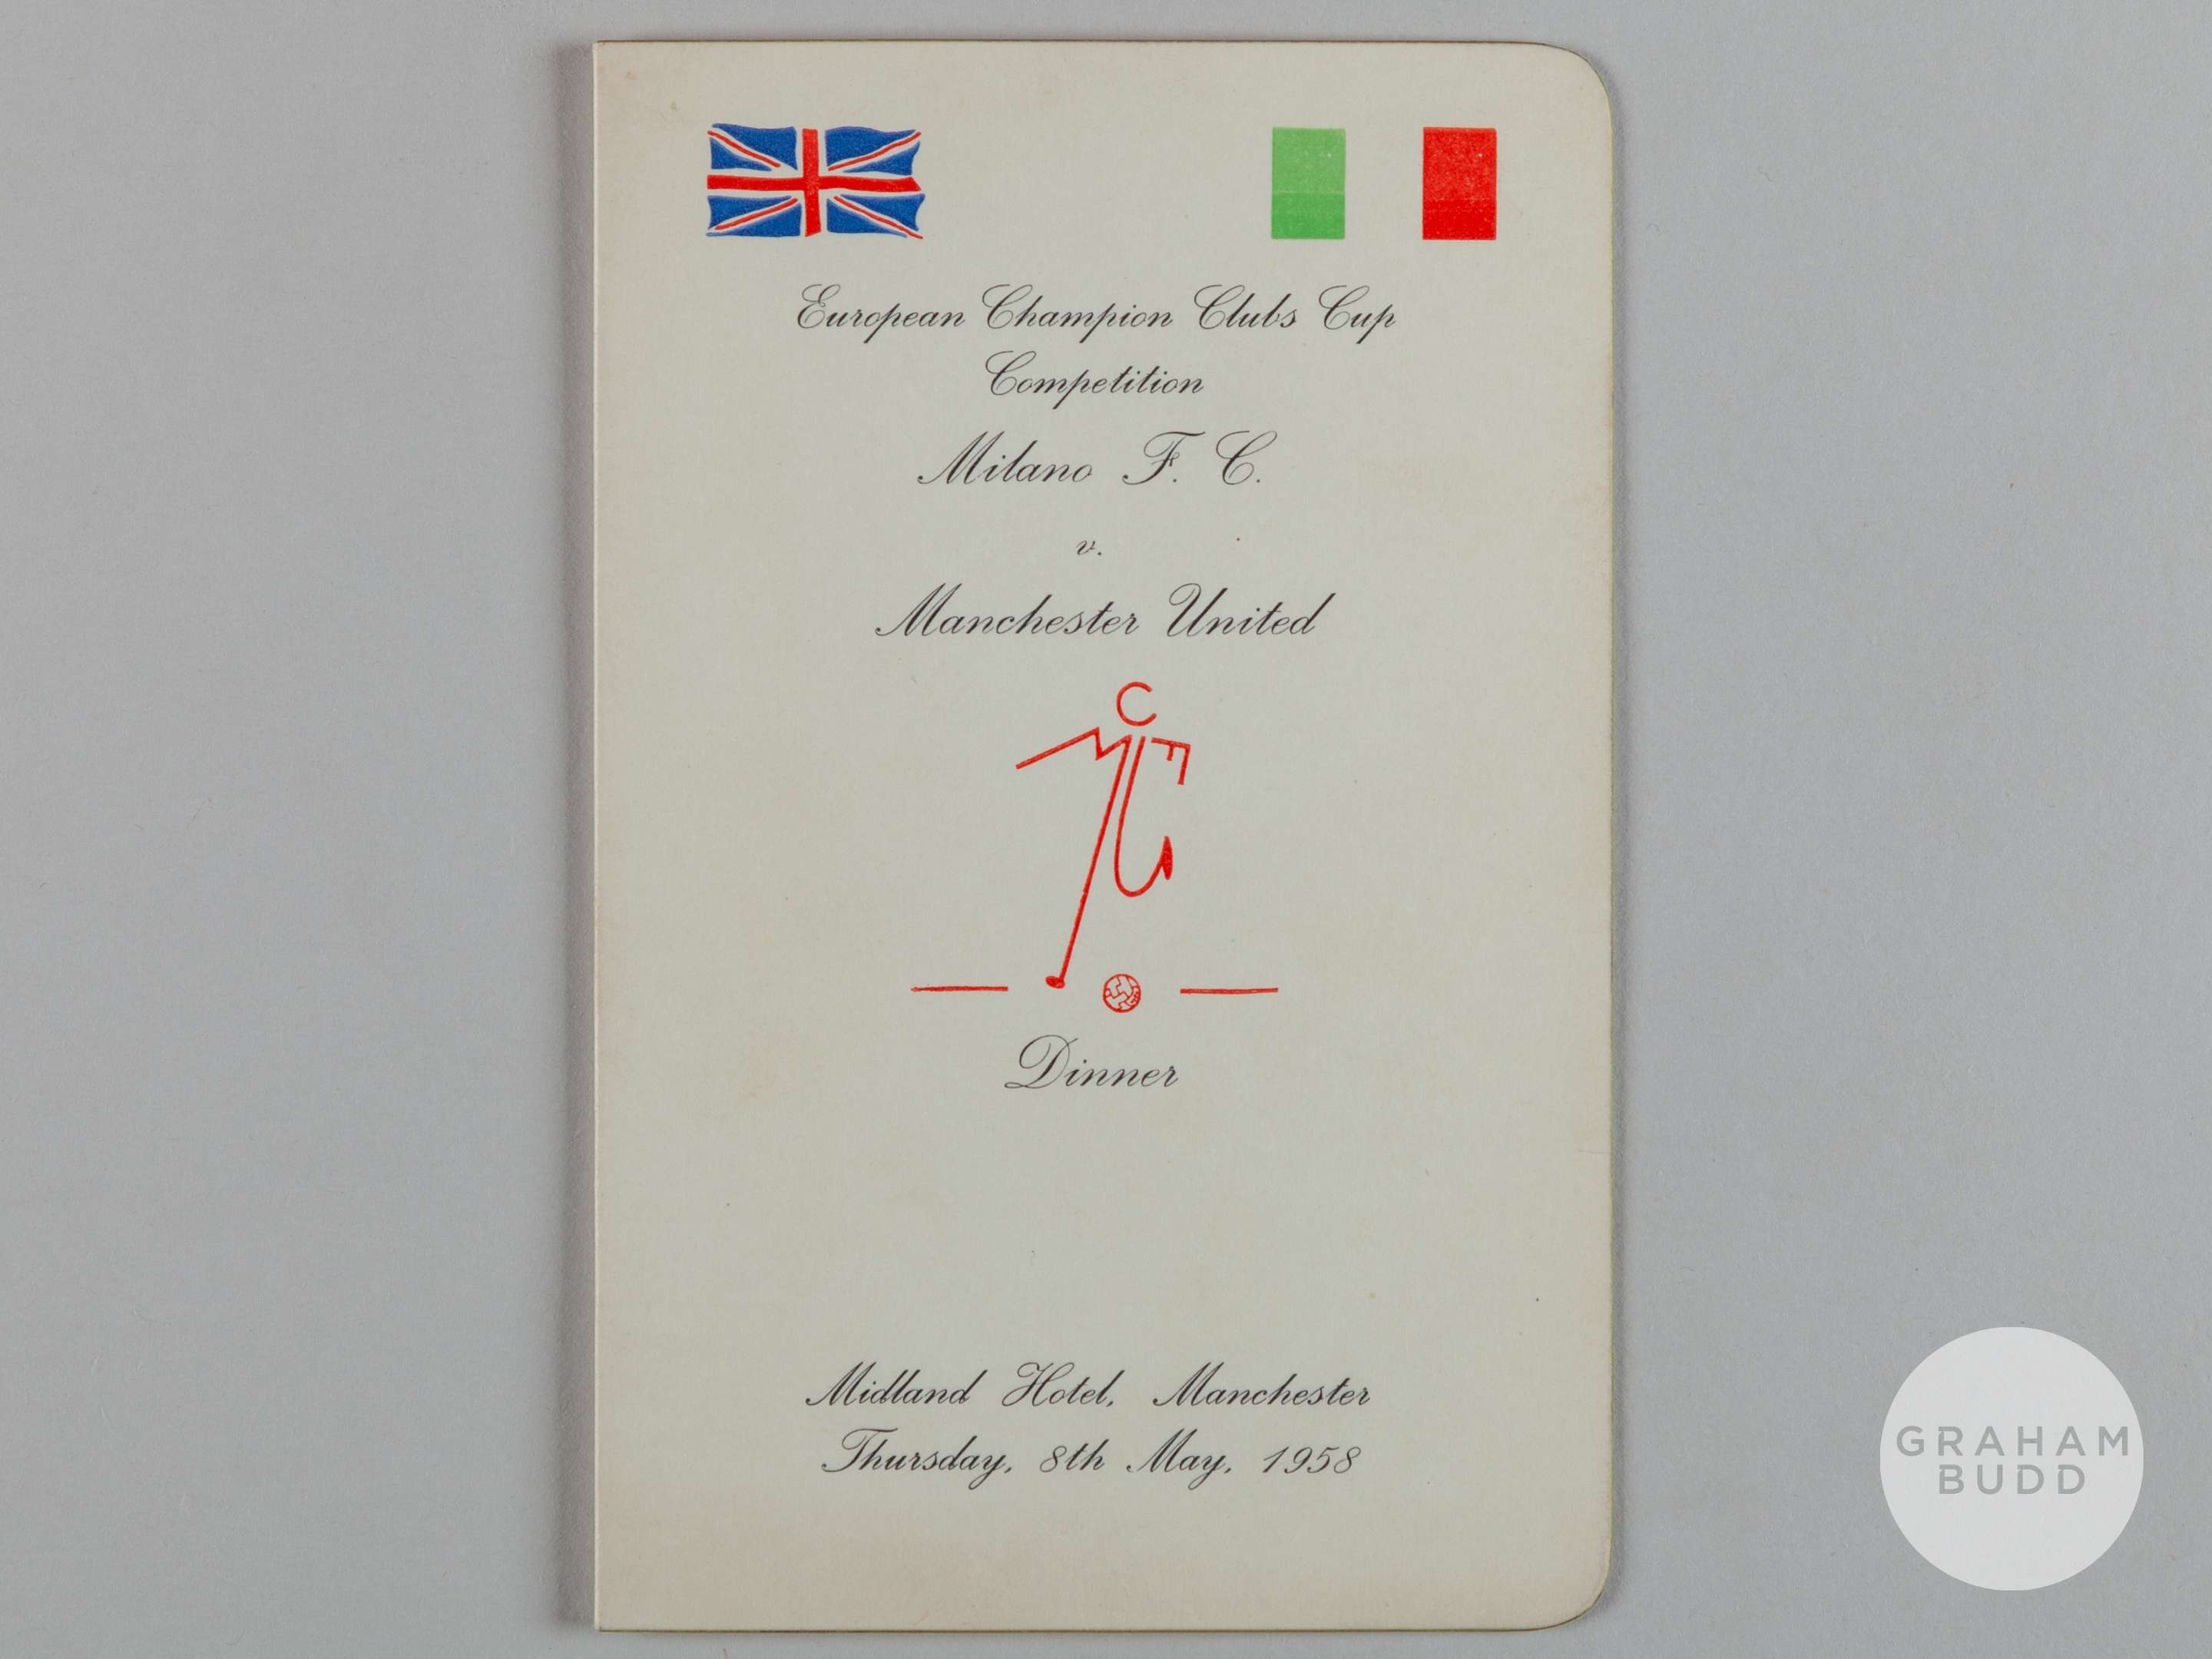 European Champion Clubs Cup
Competition
Milano F. C.
v.
Manchester United
C
M U F
Dinner
Midland Hotel, Manchester
Thursday, 8th May, 1958
GRAHAM
BUDD